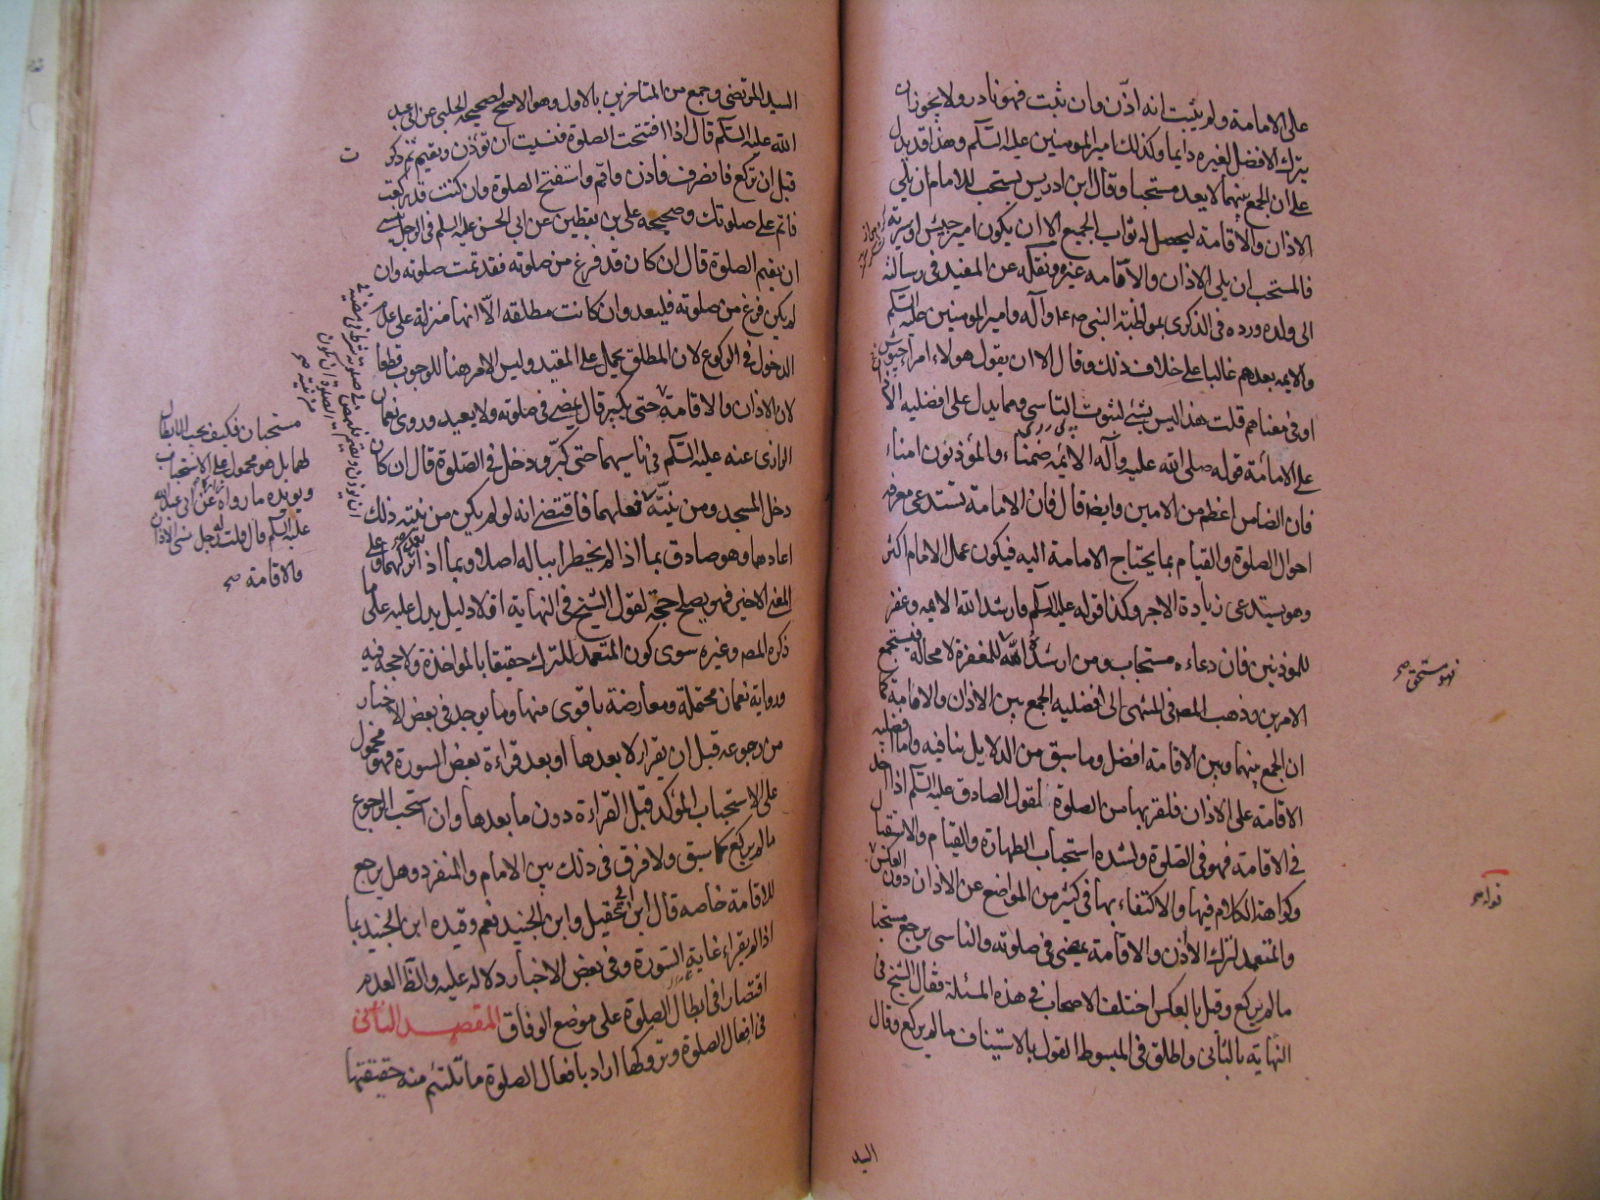 على الامامة ولم يثبت انه اذّن وان ثبت فهو نادر ولا يجوز ان
يترك الافضل لغيره دايما وكذلك امير المومنين عليه السّلم وهذا قد يدل
على ان الجمع بينهما لا يعد مستحبا وقال ابن ادريس يستحب للامام ان يلي
الاذان والاقامة ليحصل له ثواب الجميع الا ان يكون امير جيش او سرية
فالمستحب ان يلي الاذان والاقامه غيره ونقله عن المفيد في رسالته
الى ولده ورده في الذكرى بمواظبة النبي صلى الله عليه وآله وامير المومنين عليه السّلم
والايمه بعدهم غالبا على خلاف ذلك وقال الا ان يقول هولاء امراء جيوش
او في معناهم قلت هذا ليس بشئ لثبوت التاسي ومما يدل على افضليه
على الامامة قوله صلى الله عليه وآله الايمه ضمناء والمؤذنون امناء
فان الضامن اعظم من الامين وايضا قال فان الامامة تستدعى معرفه
احوال الصلوة والقيام بما يحتاج الامامة اليه فيكون عمل الامام اكثر
وهو يستدعى زيادة الاجر وكذا قوله عليه السلم فارشد الله الايمه وغفر
للموذنين فان دعاءه مستجاب ومن ارشده الله للمغفرة لا محالة فيستجمع
الامرين وذهب المصنف في المنتهى الى افضليه الجمع بين الاذان والامامة كما
ان الجمع بينهما وبين الاقامة افضل وما سبق من الدلايل ينافيه واما افضليه
الاقامة على الاذان فلقربها من الصلوة لقول الصادق عليه السّلم اذا اخذ
في الاقامة فهو في الصلوة ولشده استحباب الطهارة والقيام والاستقبال
وكراهة الكلام فيها والاكتفاء بها في كثير من المواضع عن الاذان دون العكس
والمتعمد لترك الاذان والاقامة يمضي في صلوته والناسي يرجع مستحبا
ما لم يركع وقيل بالعكس اختلف الاصحاب في هذه المسئلة فقال الشيخ في
النهاية بالثاني واطلق في المبسوط القول بالاستيناف ما لم يركع وقال
فهو مستحق صح
السيد
السيد المرتضى وجمع من المتأخرين بالاول وهو الاصح لصحيحه الحلبي عن ابي عبد
الله عليه السّلم قال اذا افتتحت الصلوة فنسيت ان تؤذن وتقيم ثم ذكر
قبل ان تركع فانصرف فاذن واقم واستفتح الصلوة وان كنت قد ركعت
فاتم على صلوتك وصحيحه على بن يقطين عن ابي الحسن عليه السلم في الرجل ينسى
ان يقيم الصلوة قال ان كان قد فرغ من صلوته فقد تمت صلوته وان
لم يكن فرغ من صلوته فليعد وان كانت مطلقه الّا انها منزلة على عدم
الدخول في الركوع لان المطلق يحمل على المقيد وليس الامر هنا للوجوب قطعا
لان الاذان والاقامة حتى يكبر قال يمضي في صلوته ولا يعيد وروى نعمان
الرازى عنه عليه السّلم في ناسيهما حتى كبّر ودخل في الصّلوة قال ان كان
دخل المسجد ومن نيّته فعلهما فاقتضى انه لو لم يكن من نيته ذلك
اعادها وهو صادق بما اذا لم يخطرا بباله اصلا وبما اذا تركهما وعلى
المعنى الاخير فهو يصلح حجة لقول الشيخ في النهاية اذ لا دليل يدل عليه على ما
ذكره المصنف وغيره سوى كون المتعمد للترك حقيقا بالمواخذة ولا حجة فيه
ورواية نعمان محتملة ومعارضة باقوى منها وما يوجد في بعض الاخبار
من رجوعه قبل ان يقرا لا بعدها او بعد قراءة بعض السورة فهو محمول
على الاستحباب المؤكد قبل القراءة دون ما بعدها وان استحب الرجوع
ما لم يركع كما سبق ولا فرق في ذلك بين الامام والمنفرد وهل يرجع
للاقامة خاصه قال ابن ابي عقيل وابن الجنيد نعم وقيده ابن الجنيد بما
اذا لم يقراء غاية السورة وفي بعض الاخبار دلاله عليه والظ العدم
اقتصارا في ابطال الصلوة على موضع الوفاق المقصد الثاني
في افعال الصلوة وتروكها اراد بافعال الصلوة ما تلتئم منه حقيقتها
مستحبان فكيف يجب الابطال
لهما بل هو محمول على الاستحباب
ويويده ما رواه زراره عن ابي عبد الله
عليه السلم قال قلت له رجل نسي الاذان
والاقامة صح